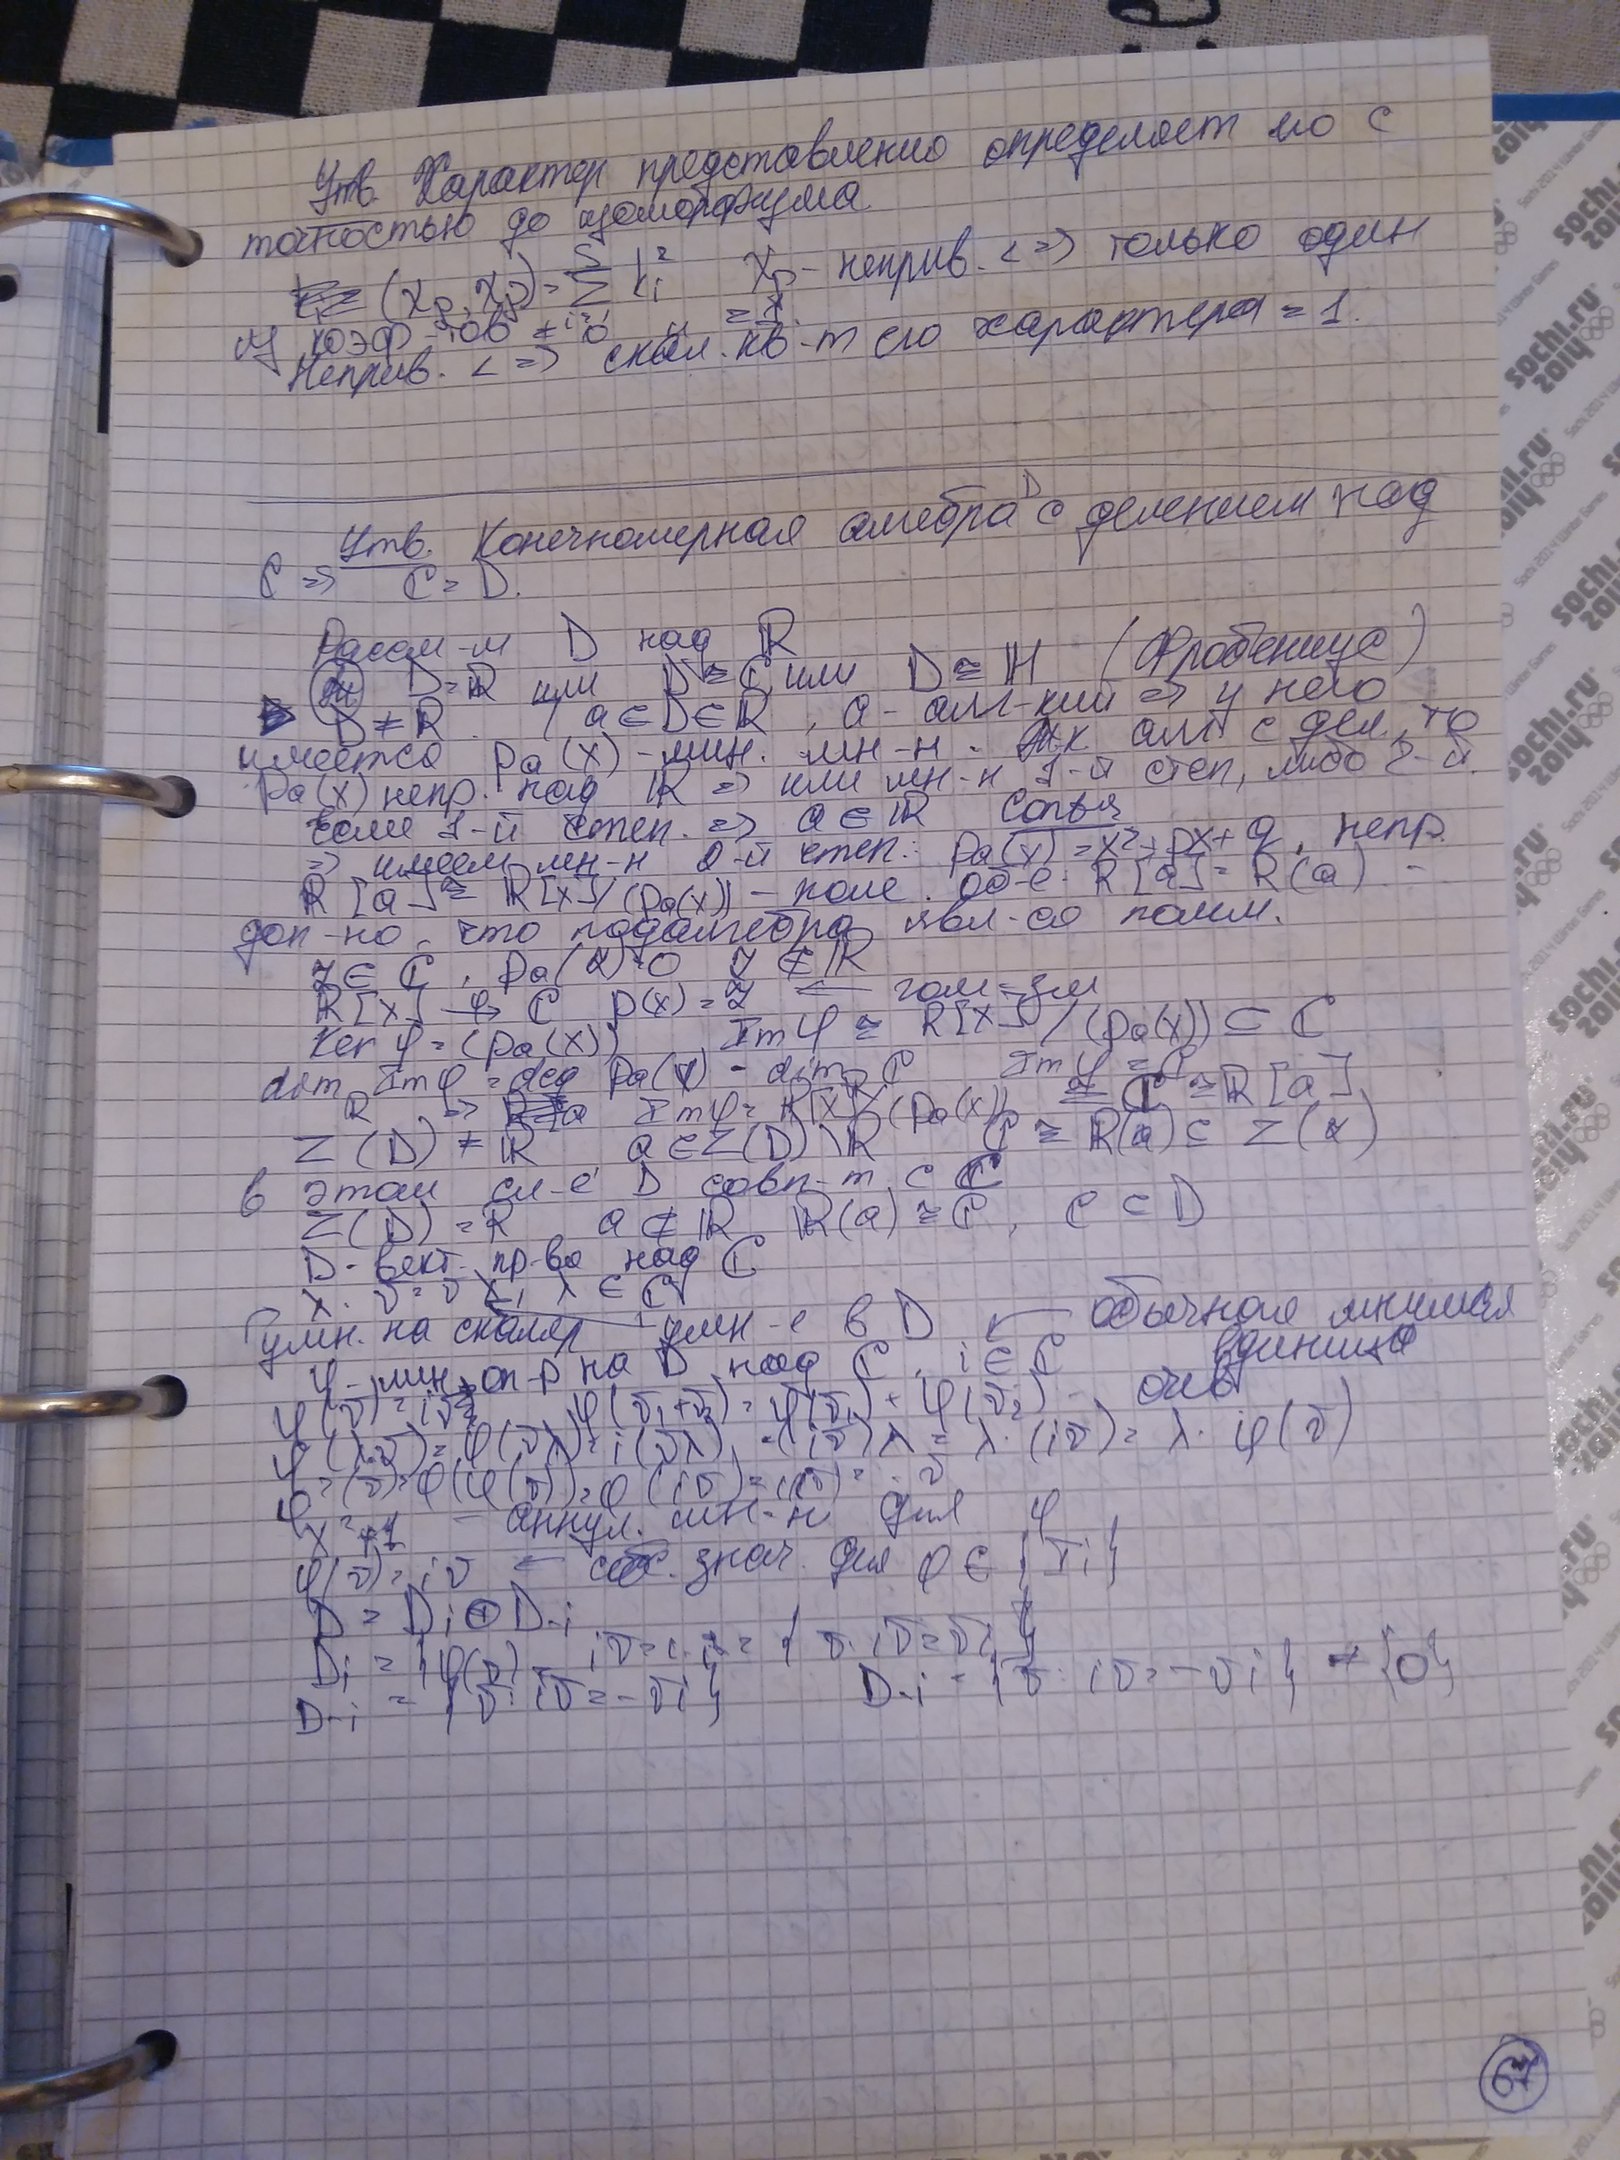 Утв. Характер представления определяет его с
точностью до изоморфизма.
(χρ, χρ) = Σ kᵢ² χρ - неприв. <=> только один
из коэф-тов ≠ 0 и = 1.
Неприв. <=> скал. кв-т его характера = 1.
Утв. Конечномерная алгебра D с делением над
ℂ => ℂ = D.
Рассм-м D над ℝ
D = ℝ или D ≅ ℂ, или D ≅ ℍ (Фробениус)
D ≠ ℝ. a ∈ D ∈ ℝ, a - алг-кий => у него
имеется pa(x) - мин. мн-н. Т.к. алг. с дел., то
pa(x) непр. над ℝ => или мн-н 1-й степ, либо 2-й.
Если 1-й степ. => a ∈ ℝ
=> имеем мн-н 2-й степ.: pa(x) = x² + px + q, непр.
ℝ[a] ≅ ℝ[x]/(pa(x)) - поле. об-е: ℝ[a] = ℝ(a) -
доп-но, что подалгебра явл-ся полем.
z ∈ ℂ, pa(z) = 0 z ∉ ℝ
ℝ[x] →φ ℂ p(x) = z ← гом-зм
Ker φ = (pa(x)) Im φ ≅ ℝ[x]/(pa(x)) ⊂ ℂ
dim Im φ = deg pa(x) = dim ℂ Im φ = ℂ
ℝ => Im φ = ℝ[x]/(pa(x)) ≅ ℂ ≅ ℝ[a]
Z(D) ≠ ℝ a ∈ Z(D)\ℝ ℂ ≅ ℝ(a) ⊂ Z(α)
в этом сл-е D совп-т с ℂ
Z(D) = ℝ a ∉ ℝ ℝ(a) ≅ ℂ, ℂ ⊂ D
D - вект. пр-во над ℂ
λ · v = vλ, λ ∈ ℂ
умн. на скаляр умн-е в D ← обычная мнимая
единица
φ - лин. оп-р на D над ℂ, i ∈ ℂ
φ(v) = iv φ(v₁+v₂) = φ(v₁) + φ(v₂) - очев
φ(λv) = φ(vλ) = i(vλ) = (iv)λ = λ·(iv) = λ·φ(v)
φ²(v) = φ(φ(v)) = φ(iv) = = -v
x²+1 - аннул. мн-н для φ
φ(v) = iv ← соб. знач. для φ ∈ {±i}
D = Dᵢ ⊕ D₋ᵢ
Dᵢ = {φ(v) = {v: iv = vi}
D₋ᵢ = {v: iv = -vi} D₋ᵢ = {v: iv = -vi} ≠ {0}
67
sochi.ru
2014